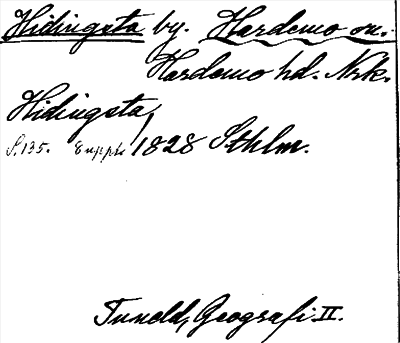 Hidingsta by. Hardemo sn.
Hardemo hd. Nrk.
Hidingsta,
S. 135. 8 uppl. 1828 Sthlm.
Tuneld, Geografi II.